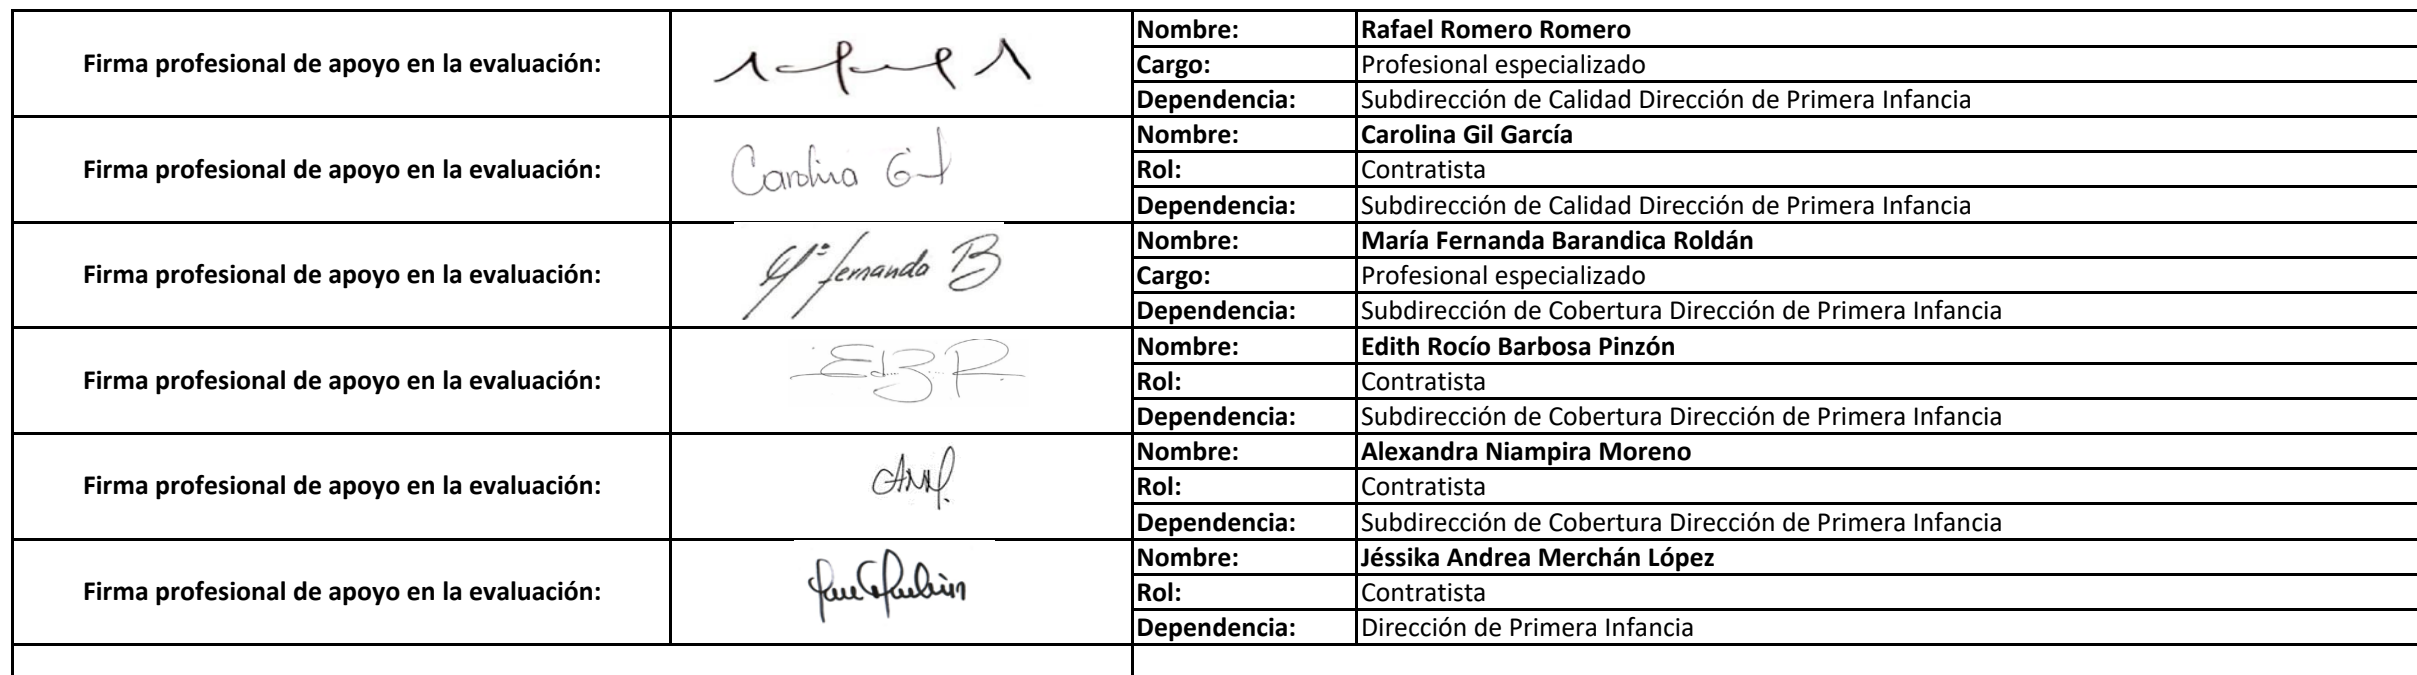 Firma profesional de apoyo en la evaluación:
Nombre: Rafael Romero Romero
Cargo: Profesional especializado
Dependencia: Subdirección de Calidad Dirección de Primera Infancia
Firma profesional de apoyo en la evaluación:
Carolina Gil
Nombre: Carolina Gil García
Rol: Contratista
Dependencia: Subdirección de Calidad Dirección de Primera Infancia
Firma profesional de apoyo en la evaluación:
Mª fernanda B
Nombre: María Fernanda Barandica Roldán
Cargo: Profesional especializado
Dependencia: Subdirección de Cobertura Dirección de Primera Infancia
Firma profesional de apoyo en la evaluación:
Nombre: Edith Rocío Barbosa Pinzón
Rol: Contratista
Dependencia: Subdirección de Cobertura Dirección de Primera Infancia
Firma profesional de apoyo en la evaluación:
Nombre: Alexandra Niampira Moreno
Rol: Contratista
Dependencia: Subdirección de Cobertura Dirección de Primera Infancia
Firma profesional de apoyo en la evaluación:
Nombre: Jéssika Andrea Merchán López
Rol: Contratista
Dependencia: Dirección de Primera Infancia